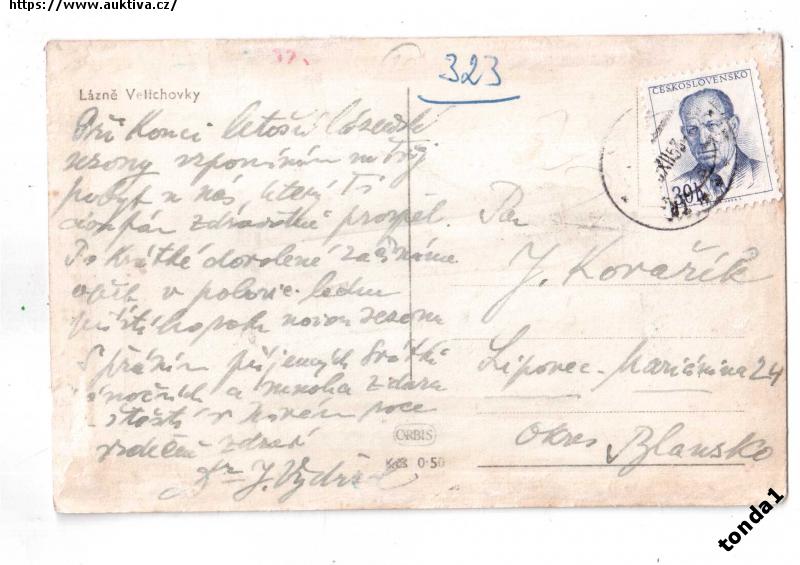 https://www.auktiva.cz/
323
Lázně Velichovky
ČESKOSLOVENSKO
30h
Při konci letošní lázeňské
sezony vzpomínám na Tvůj
pobyt u nás, který Ti
doufám zdravotně prospěl.
Po krátké dovolené začínáme
opět v polovic. ledna
příštího roku novou sezonu
S přáním příjemných svátků
vánočních a mnoho zdaru
štěstí v novém roce
srdečně zdraví
Dr J. Vydra
Pan
J. Kovařík
Lipovec - Mariánina 24
Okres Blansko
ORBIS
Kčs 0·50
tonda1